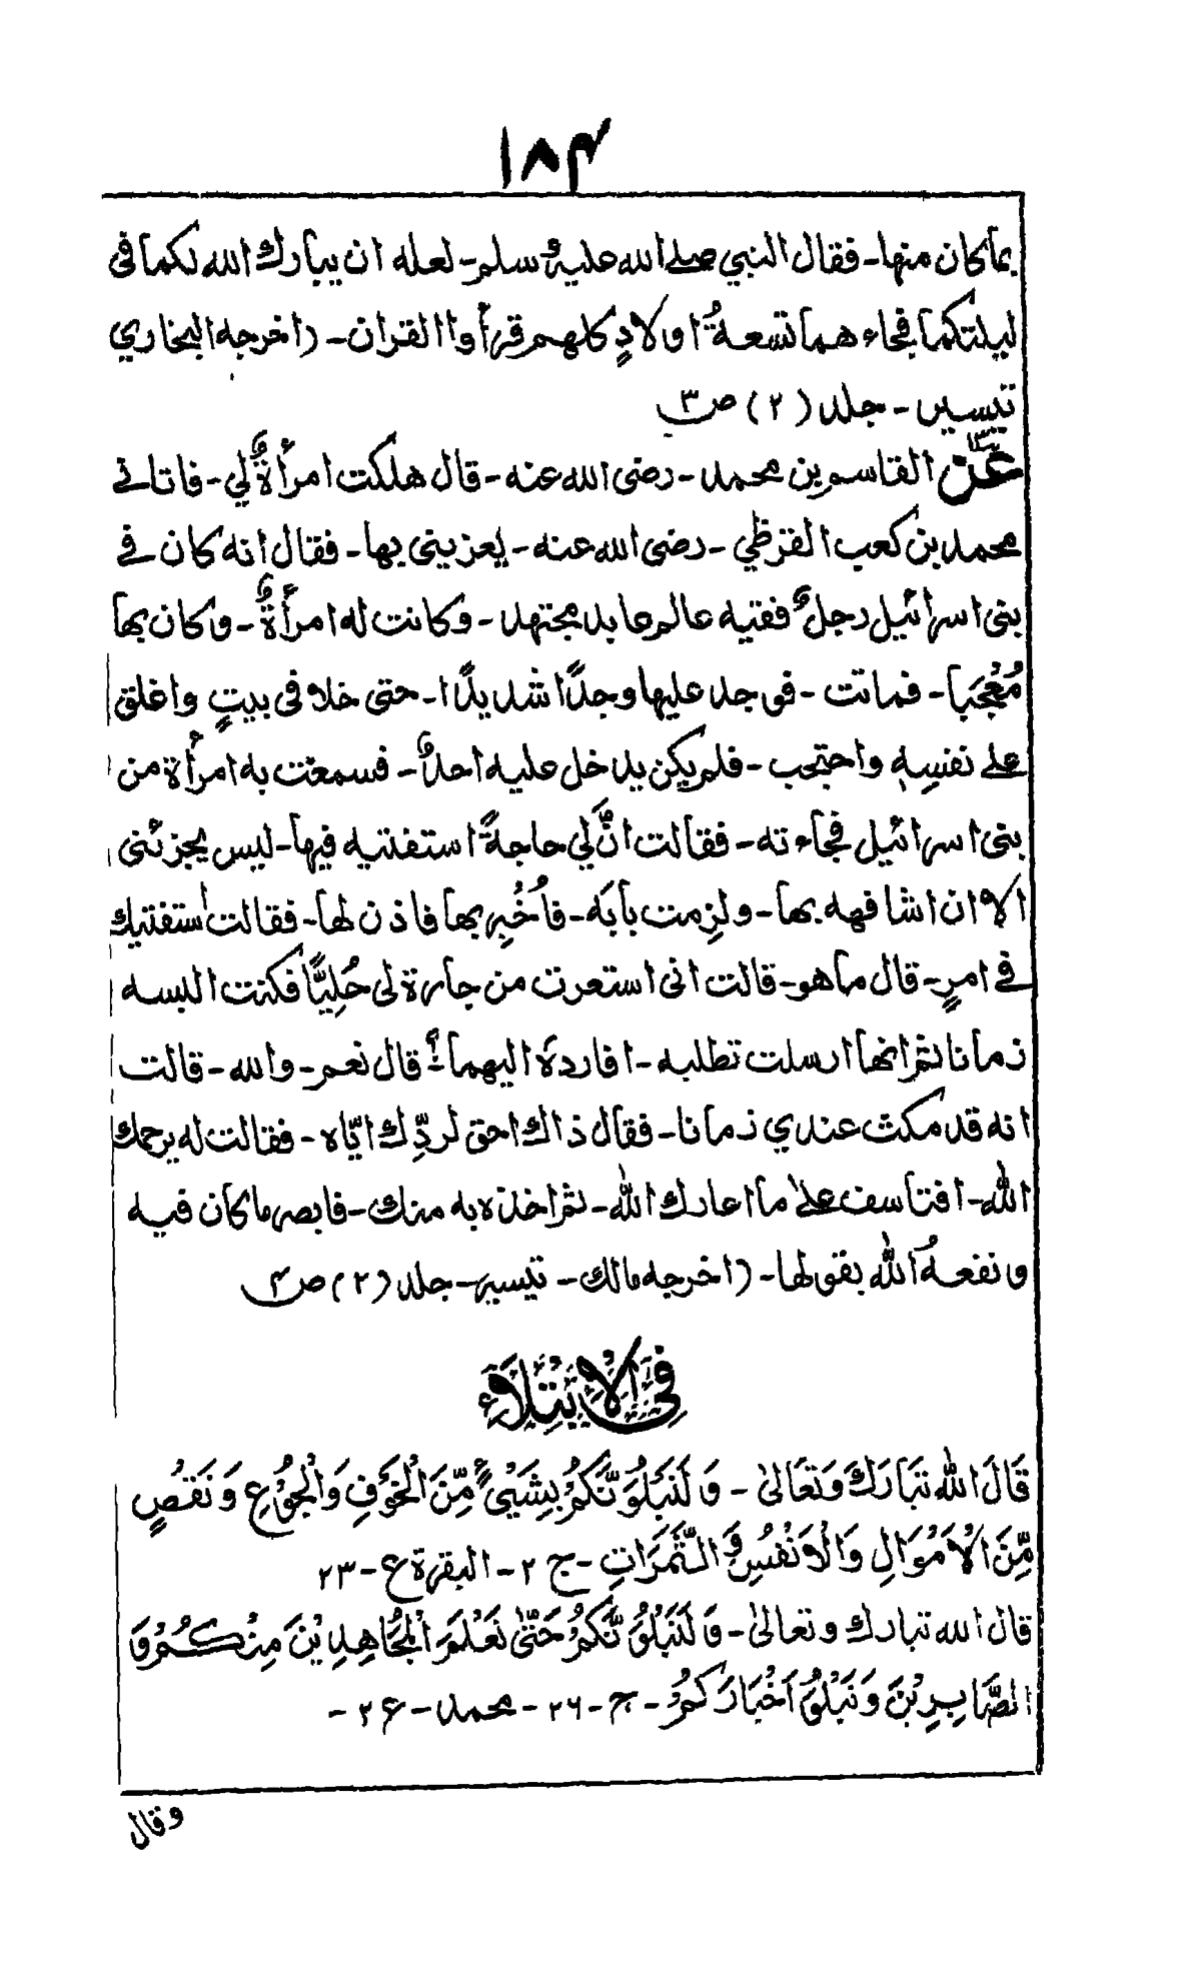 ١٨٣
بما كان منها - فقال النبي صلے الله عليه وسلم - لعله ان يبارك الله لكما فى
ليلتكما فجاء هما تسعةُ اولادٍ كلهم قرأوا القران - (اخرجه البخاري
تيسير - جلد (٢) ص٣
عَنْ القاسم بن محمد - رضى الله عنه - قال هلكت امرأةٌ لي - فاتانے
محمد بن كعب القرظي - رضى الله عنه - يعزينى بها - فقال انه كان فے
بنى اسرائيل رجلٌ فقيه عالم عابد مجتهد - وكانت له امرأةٌ - وكان بها
مُعْجَبا - فماتت - فوجد عليها وجدًا شديدًا - حتى خلا فى بيتٍ واغلق
علے نفسِهٖ واحتجب - فلم يكن يدخل عليه احدٌ - فسمعت به امرأة من
بنى اسرائيل فجاءته - فقالت انَّ لي حاجةً استفتيه فيها - ليس يجزئنى
الا ان اشافهه بها - ولزِمت بابَه - فأُخْبِر بها فاذن لها - فقالت أستفتيك
فے امرٍ - قال ما هو - قالت انى استعرت من جارة لى حُلِيًّا فكنت البسه
زمانا ثم انها ارسلت تطلبه - افاردهٗ اليهما؟ قال نعم - والله - قالت
انه قد مكث عندي زمانا - فقال ذاك احق لردِّك ايّاه - فقالت له يرحمك
الله - افتأسف علےٰ ما اعارك الله - ثم اخذه به منك - فابصر ما كان فيه
ونفعهُ الله بقولها - (اخرجه مالك - تيسير - جلد (٢) ص٣
فِى الْاِبْتِلَاءِ
قَالَ اللهُ تَبَارَكَ وَتَعَالىٰ - وَلَنَبْلُوَنَّكُمْ بِشَيْئٍ مِّنَ الْخَوْفِ وَالْجُوْعِ وَنَقْصٍ
مِّنَ الْاَمْوَالِ وَالْاَنْفُسِ وَالثَّمَرَاتِ - ج ٢ - البقرة ع - ٢٣
قال الله تبارك وتعالىٰ - وَلَنَبْلُوَنَّكُمْ حَتّٰى نَعْلَمَ الْمُجَاهِدِيْنَ مِنْكُمْ وَ
الصَّابِرِيْنَ وَنَبْلُوَا اَخْبَارَكُمْ - ج - ٢٦ - محمد - ع ٢ -
وقال